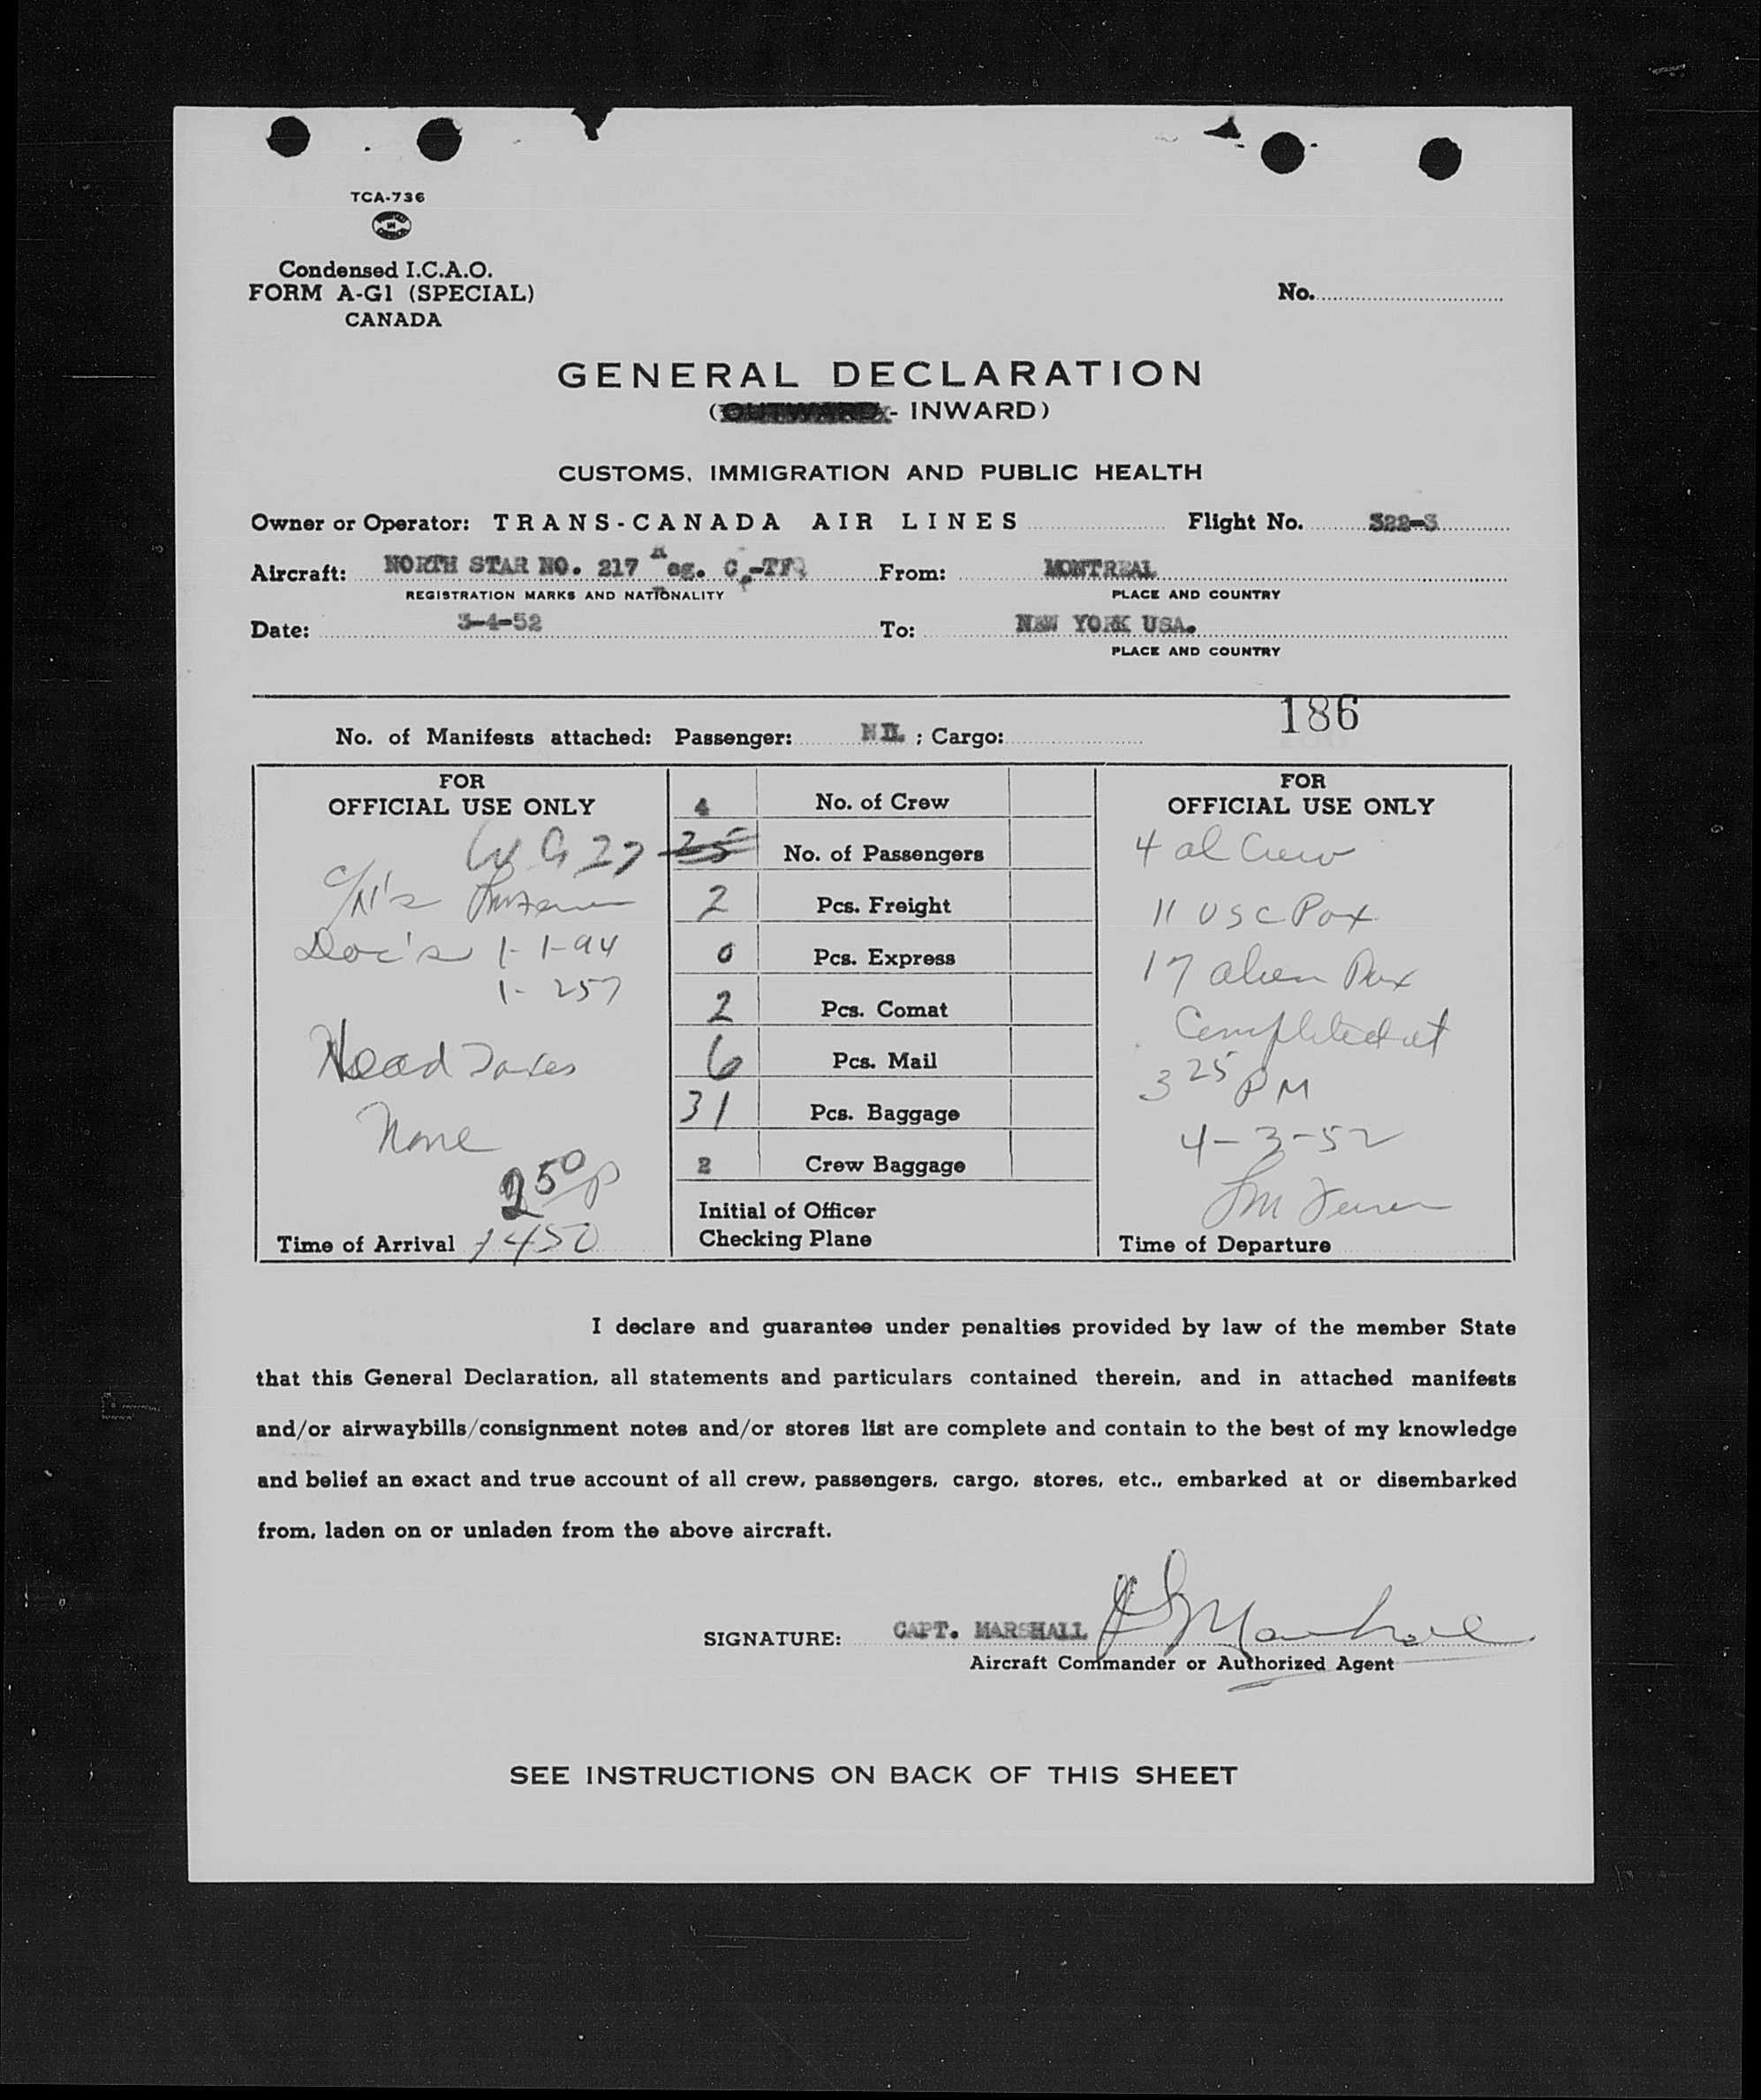 TCA-736
Condensed I.C.A.O.
FORM A-G1 (SPECIAL)
CANADA
No.
GENERAL DECLARATION
(OUTWARD - INWARD)
CUSTOMS, IMMIGRATION AND PUBLIC HEALTH
Owner or Operator: TRANS-CANADA AIR LINES Flight No. 322-3
Aircraft: NORTH STAR NO. 217 Reg. CF-TFQ From: MONTREAL
REGISTRATION MARKS AND NATIONALITY PLACE AND COUNTRY
Date: 3-4-52 To: NEW YORK USA.
PLACE AND COUNTRY
186
No. of Manifests attached: Passenger: NIL ; Cargo:
FOR OFFICIAL USE ONLY
C/N's
Doc's 1-1-94
1-257
Head Taxes
None
2 50 p
Time of Arrival 1450
4 No. of Crew
25 No. of Passengers
2 Pcs. Freight
0 Pcs. Express
2 Pcs. Comat
6 Pcs. Mail
31 Pcs. Baggage
2 Crew Baggage
Initial of Officer
Checking Plane
FOR
OFFICIAL USE ONLY
4 al Crew
11 USC Pax
17 alien Pax
Completed at
3 25 PM
4-3-52
Time of Departure
I declare and guarantee under penalties provided by law of the member State
that this General Declaration, all statements and particulars contained therein, and in attached manifests
and/or airwaybills/consignment notes and/or stores list are complete and contain to the best of my knowledge
and belief an exact and true account of all crew, passengers, cargo, stores, etc., embarked at or disembarked
from, laden on or unladen from the above aircraft.
SIGNATURE: CAPT. MARSHALL Marshall
Aircraft Commander or Authorized Agent
SEE INSTRUCTIONS ON BACK OF THIS SHEET